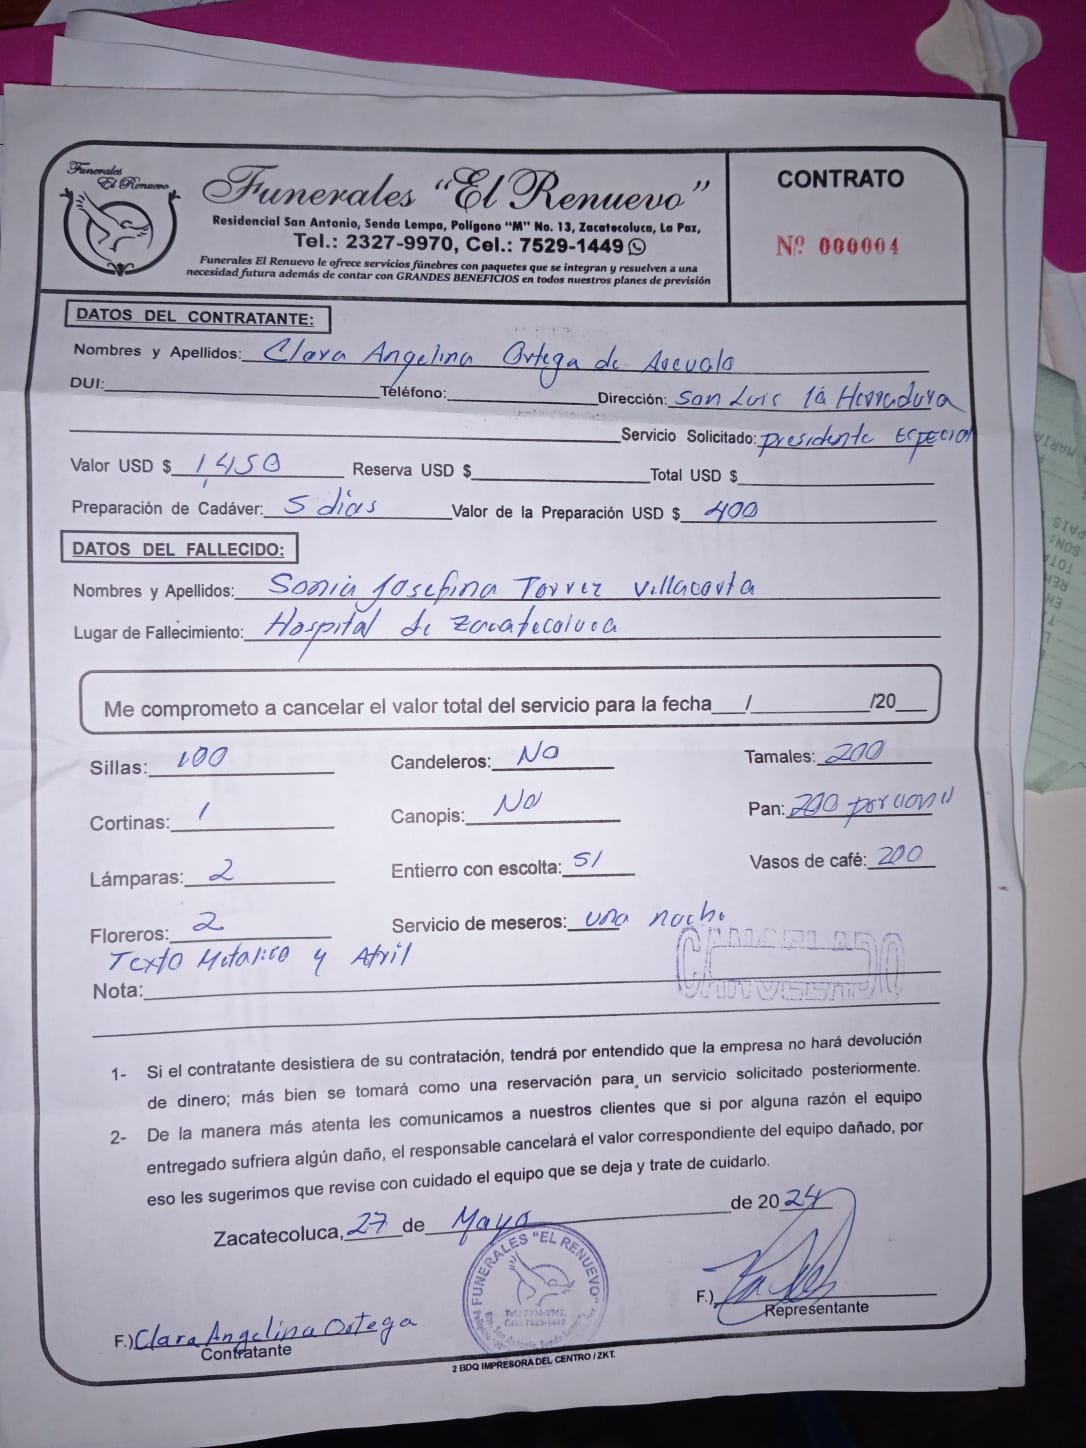 Funerales
El Renuevo
Funerales "El Renuevo"
Residencial San Antonio, Senda Lempa, Polígono "M" No. 13, Zacatecoluca, La Paz,
Tel.: 2327-9970, Cel.: 7529-1449
Funerales El Renuevo le ofrece servicios fúnebres con paquetes que se integran y resuelven a una
necesidad futura además de contar con GRANDES BENEFICIOS en todos nuestros planes de previsión
CONTRATO
Nº 000004
DATOS DEL CONTRATANTE:
Nombres y Apellidos: Clara Angelina Ortega de Asevalo
DUI: Teléfono: Dirección: San Luis la Herradura
Servicio Solicitado: presidente ESPECIAl
Valor USD $ 1,450 Reserva USD $ Total USD $
Preparación de Cadáver: 5 dias Valor de la Preparación USD $ 400
DATOS DEL FALLECIDO:
Nombres y Apellidos: Sonia Josefina Torrez Villacorta
Lugar de Fallecimiento: Hospital de Zacatecoluca
Me comprometo a cancelar el valor total del servicio para la fecha / /20
Sillas: 100 Candeleros: No Tamales: 200
Cortinas: 1 Canopis: No Pan: 200 porciones
Lámparas: 2 Entierro con escolta: SI Vasos de café: 200
Floreros: 2 Servicio de meseros: una noche
Texto Metalico y Atril
CANCELADO
Nota:
1- Si el contratante desistiera de su contratación, tendrá por entendido que la empresa no hará devolución
de dinero; más bien se tomará como una reservación para un servicio solicitado posteriormente.
2- De la manera más atenta les comunicamos a nuestros clientes que si por alguna razón el equipo
entregado sufriera algún daño, el responsable cancelará el valor correspondiente del equipo dañado, por
eso les sugerimos que revise con cuidado el equipo que se deja y trate de cuidarlo.
Zacatecoluca, 27 de Mayo de 2024
FUNERALES "EL RENUEVO"
F.)
Representante
F.) Clara Angelina Ortega
Contratante
2 BDQ IMPRESORA DEL CENTRO / ZKT.